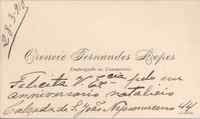 28-3-918
Orencio Fernandes Lopes
Empregado no Commercio
Felicita V. Ex.cia pelo seu
anniversario natalicio
Calçada de S. João Nepomuceno 44